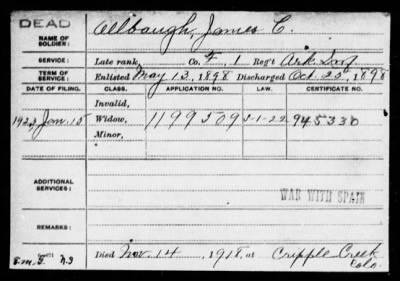 DEAD
NAME OF SOLDIER: Allbaugh, James C.
SERVICE: Late rank, Co. F, 1 Reg't Ark. Inf.
TERM OF SERVICE: Enlisted May 13, 1898 Discharged Oct. 25, 1898
DATE OF FILING. CLASS. APPLICATION NO. LAW. CERTIFICATE NO.
Invalid,
1923, Jan. 15 Widow, 1199509 5-1-22 945330
Minor,
ADDITIONAL SERVICES:
WAR WITH SPAIN
REMARKS:
Died Nov. 14, 1918, at Cripple Creek
Colo.